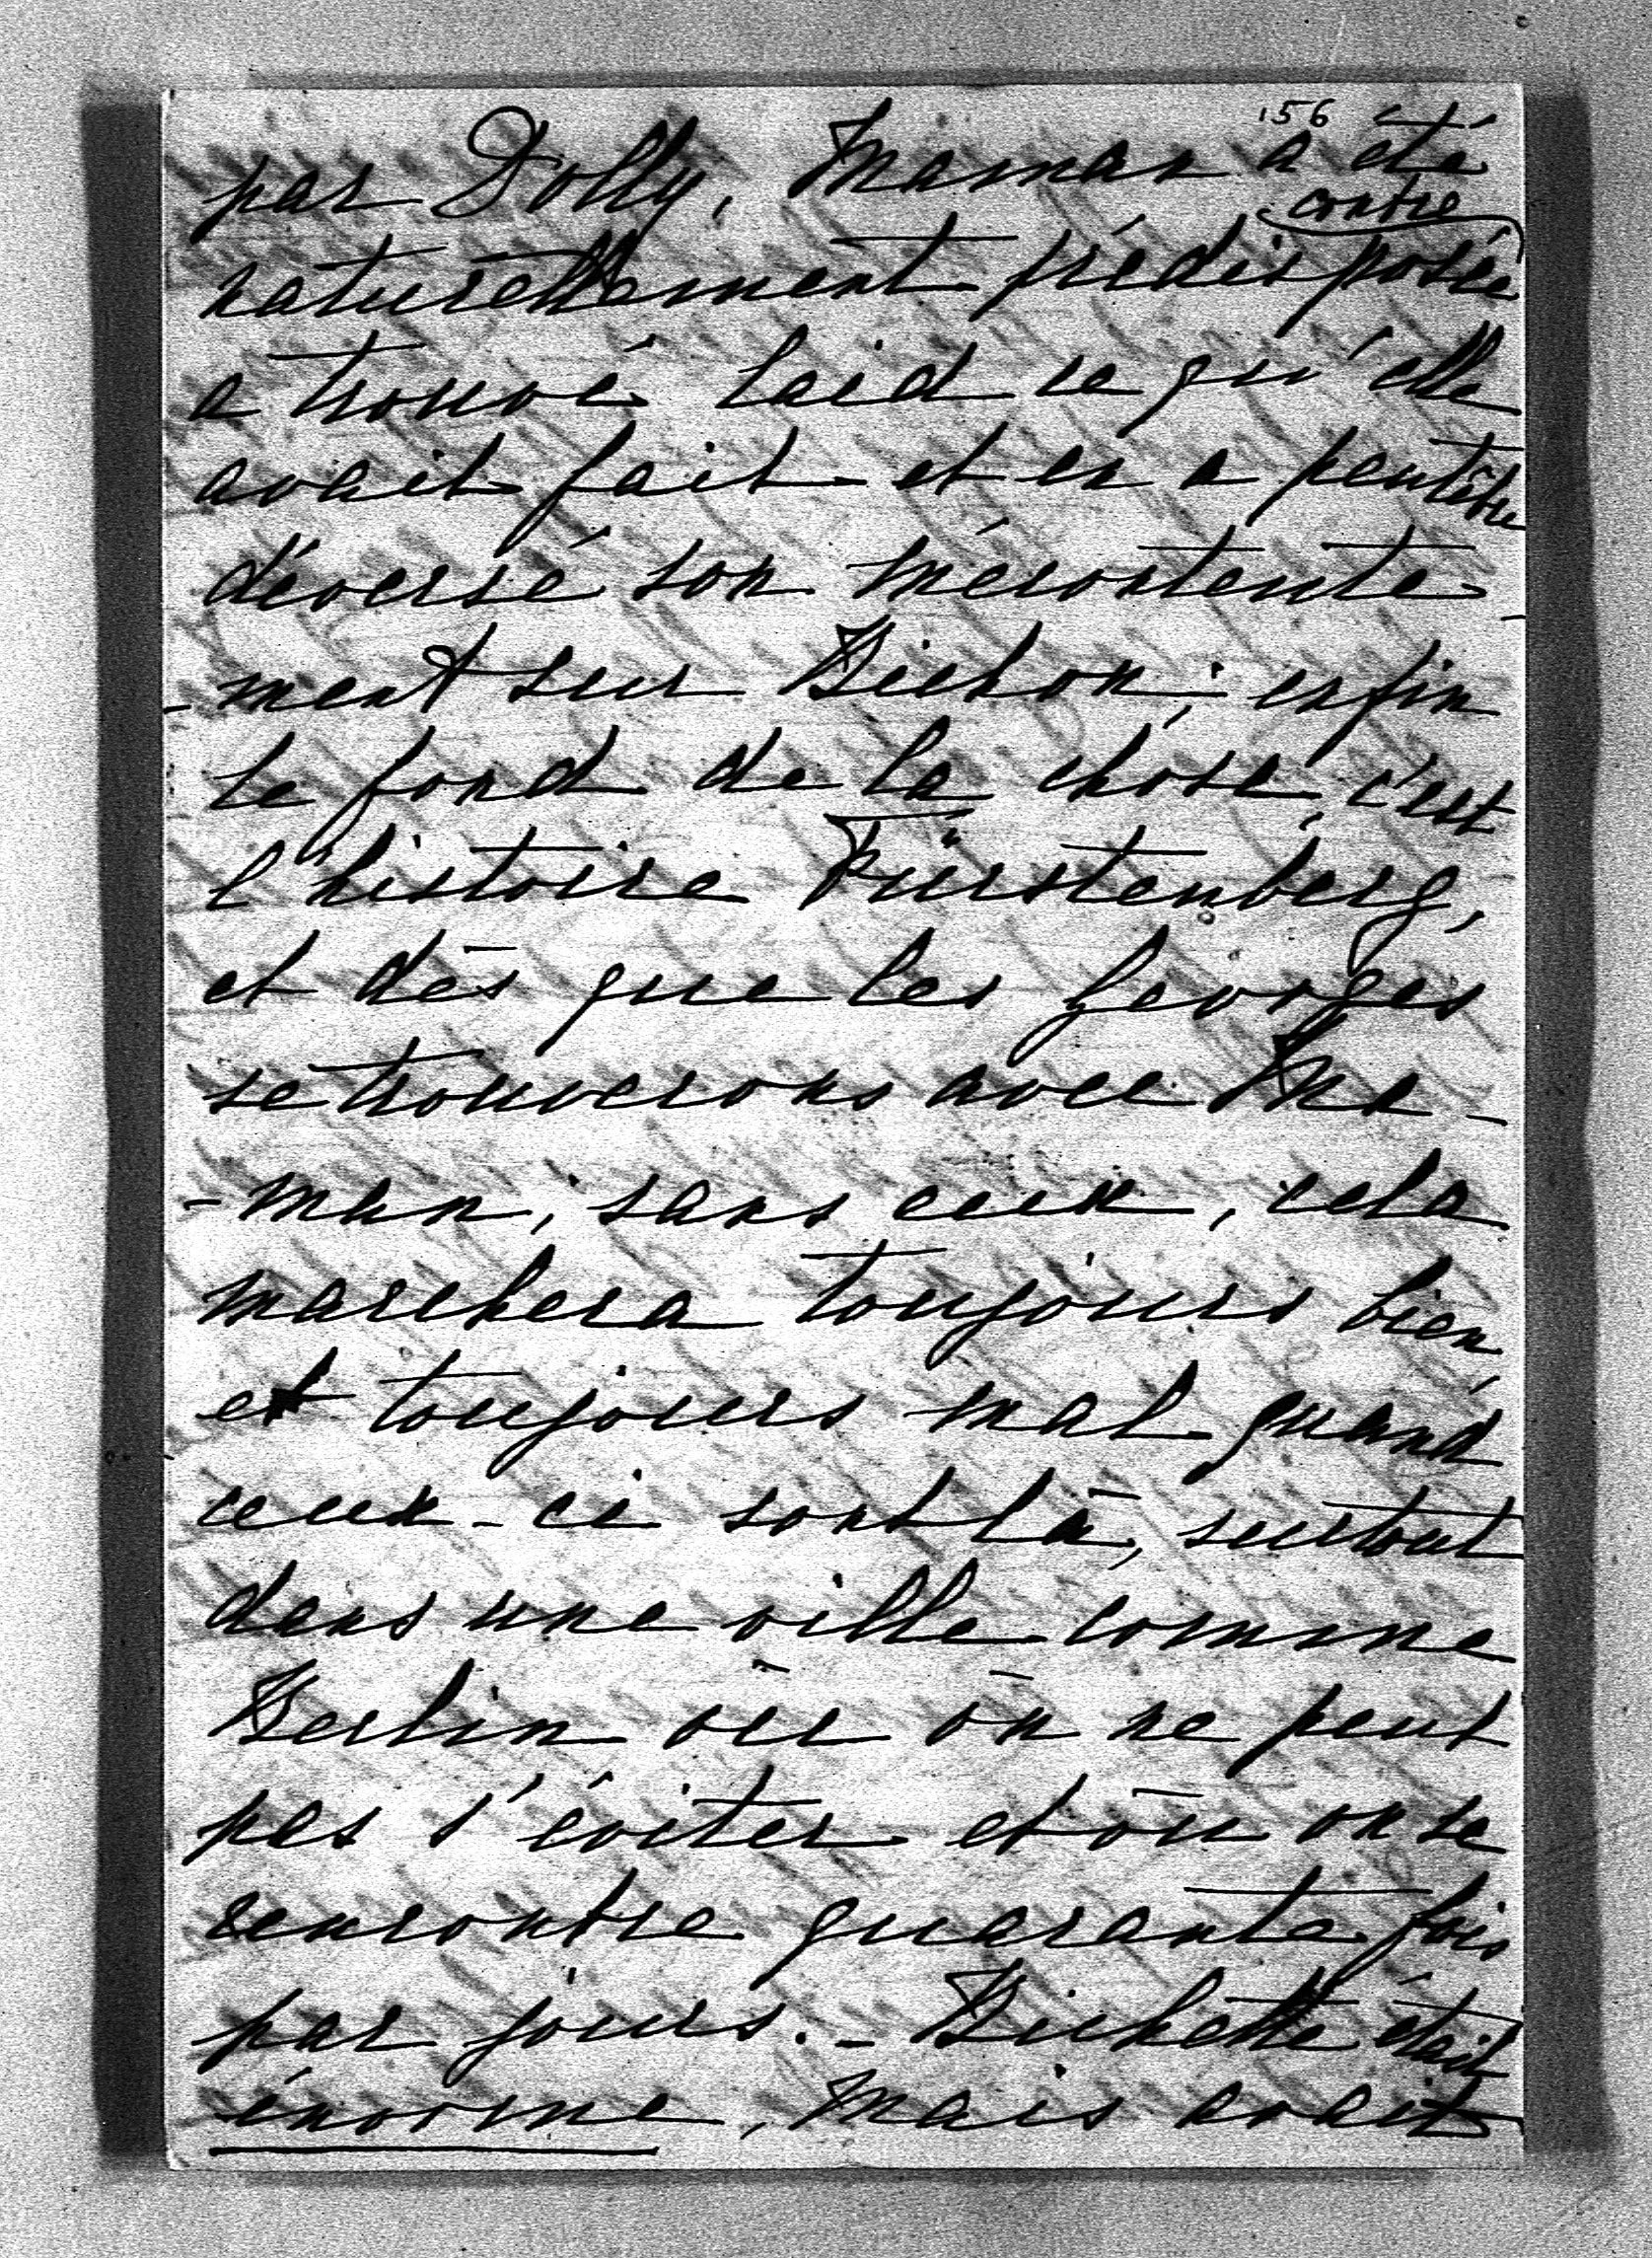 156
par Dolly, Maman a été
contre
naturellement prédisposée
a trouvé laid ce qu'elle
avait fait et en a peutêtre
déversé son mécontente-
-ment sur Bichon; enfin
le fond de la chose, c'est
l'histoire Fürstenberg,
et dès que les Georges
se trouverons avec Ma-
-man, sans ceux, cela
marchera toujours bien
et toujours mal quand
ceux-ci sont là, surtout
dans une ville comme
Berlin où on ne peut
pas s'éviter et où on se
rencontre quarante fois
par jours. - Bichette était
énorme, mais avait